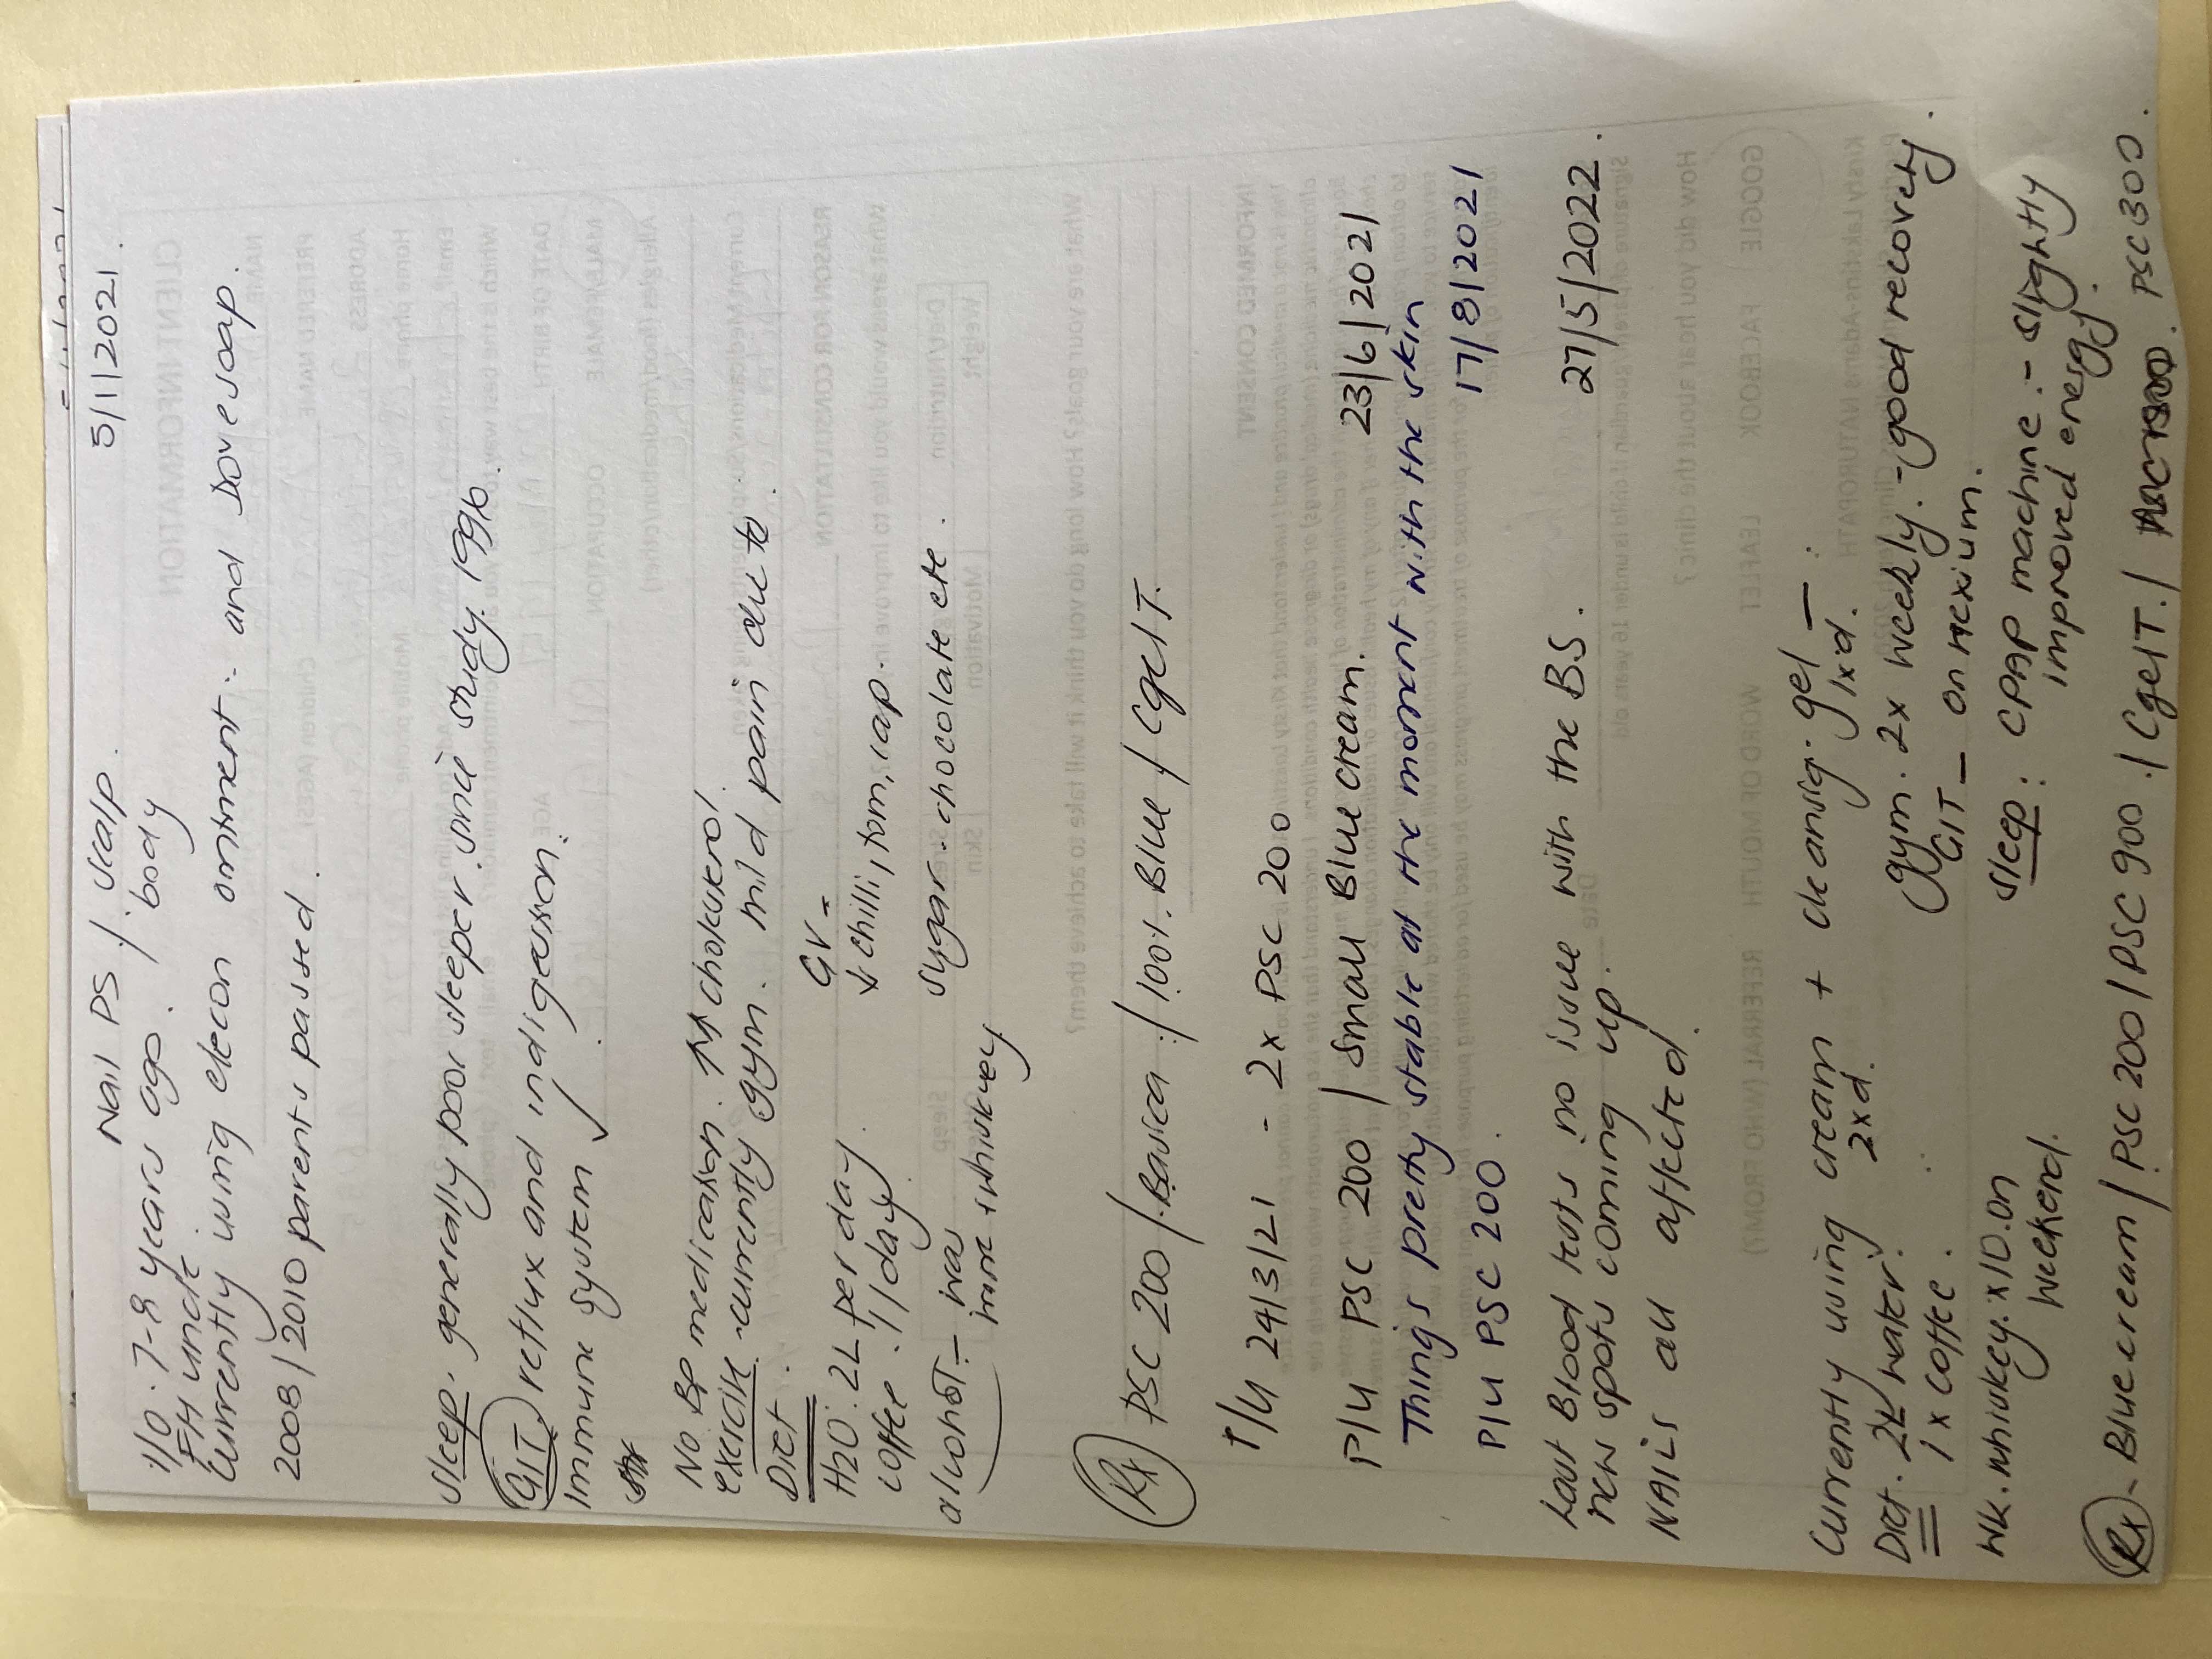 5/1/2021.
Nail PS / scalp.
1/0: 7-8 years ago. / body
FH uncle
Currently using elecon ointment. and Dove soap.
2008/2010 parents passed.
Sleep. generally poor sleeper. since study. 1996.
GIT reflux and indigestion.
Immune system ✓
No BP medication. ↑↑ cholesterol.
exercise. currently gym. mild pain due to
Diet.
H2O: 2L per day
coffee. 1/day.
alcohol -
wine + whiskey
GV -
↓ chilli, tom, cap.
sugar. chocolate etc.
Rx PSC 200 / Bavica / 100% Blue / CgelT.
P/U 24/3/21 - 2x PSC 200
P/U PSC 200 / small Blue cream. 23/6/2021
Things pretty stable at the moment with the skin
P/U PSC 200. 17/8/2021
Last Blood tests no issue with the BS. 27/5/2022.
new spots coming up.
NAILS all affected.
Currently using cream + cleansig. gel -
2xd. 1xd.
Diet. 2L water.
1x coffee.
Gym. 2x weekly. - good recovery.
GIT - on nexium.
Wk. whiskey. x10. on
weekend.
Sleep: CPAP machine - slightly
improved energy.
Rx - Blue cream / PSC 200 / PSC 900. / CgelT. / PSC 300.